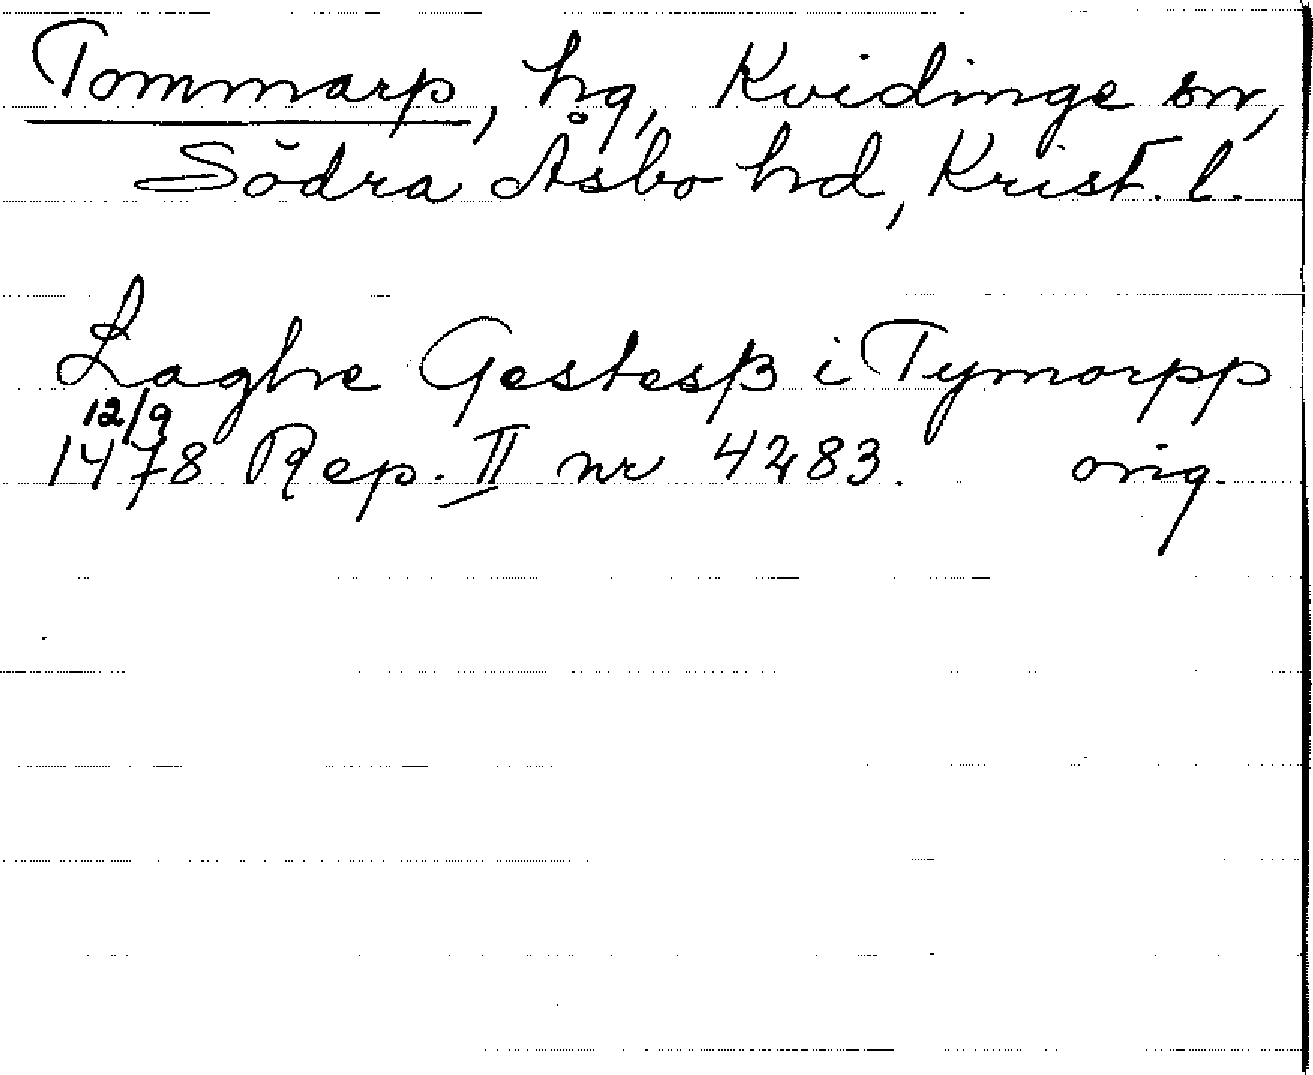 Tommarp, hg, Kvidinge sn,
Södra Åsbo hd, Krist. l.
Laghe Gestesß i Tymorpp
12/9
1478 Rep. II nr 4283. orig.